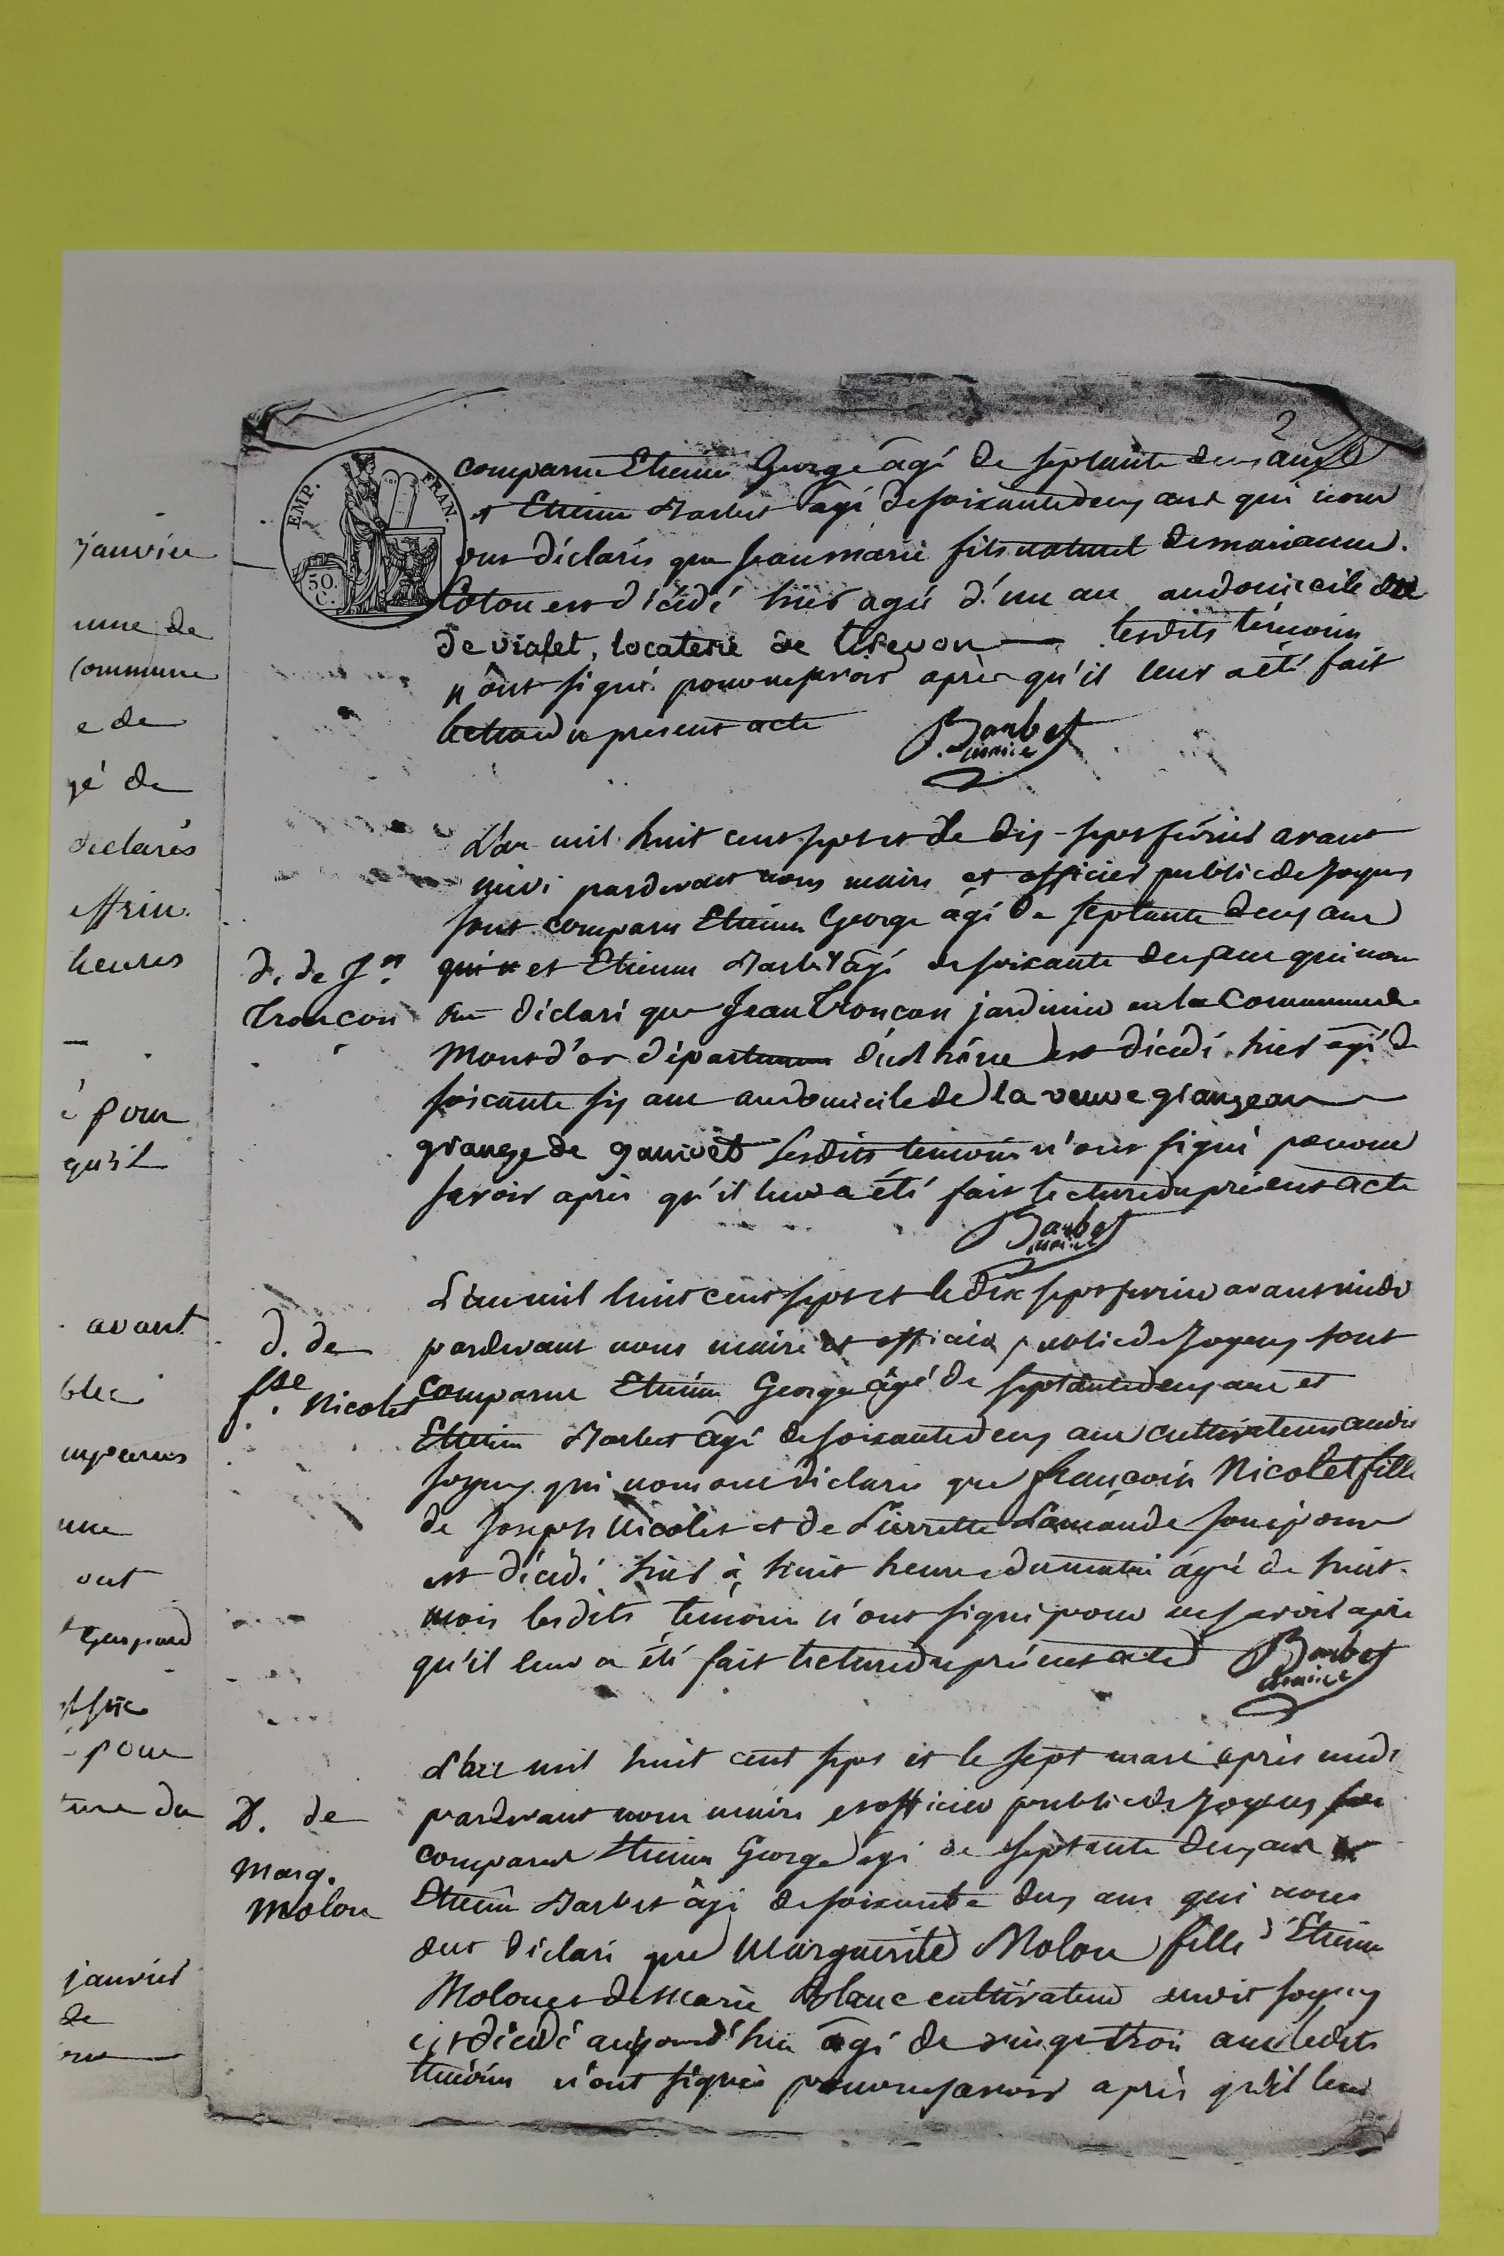 2
EMP. FRAN.
50. C.
comparu Etienne George âgé de septante deux ans
et Etienne Barbet âgé de soixante deux ans qui nous
ont déclarés que Jean marie fils naturel de marianne
Coton est décédé hier agé d'un an au domicile
de vialet, locaterie de lesdits témoin
n'ont signé pour ne savoir après qu'il leur a été fait
lecture du présent acte
Barbet
maire
L'an mil huit cent sept et le dix-sept février avant
midi pardevant nous maire et officier public de Joyeux
sont comparu Etienne George âgé de septante deux ans
et Etienne Barbet âgé de soixante deux ans qui nous
ont déclaré que Jean Tronçon jardinier en la Commune de
Mont d'or département du rhône est décédé hier agé de
soixante six ans au domicile de la veuve grangean
grange de lesdits témoin n'ont signé pour ne
savoir après qu'il leur a été fait lecture du présent acte
Barbet
maire
d. de Jn
Troncon
L'an mil huit cent sept et le dix sept fevrier avant midi
pardevant nous maire et officier public de Joyeux sont
comparu Etienne George âgé de septante deux ans et
Etienne Barbet âgé de soixante deux ans cultivateurs audit
Joyeux qui nous ont déclaré que françoise Nicolet fille
de Joseph Nicolet et de Pierrette
est décédé hier à huit heures du matin âgé de huit
mois lesdits témoin n'ont signé pour ne savoir après
qu'il leur a été fait lecture du présent acte
Barbet
maire
d. de
fse Nicolet
L'an mil huit cent sept et le sept mars après midi
pardevant nous maire et officier public de Joyeux
comparu Etienne George âgé de septante deux ans et
Etienne Barbet âgé de soixante deux ans qui nous
ont déclaré que Marguerite Molon fille d'Etienne
Molon et de Marie Blanc cultivateur audit Joyeux
est décédé aujourd'hui âgé de vingt trois ans lesdits
témoin n'ont signés pour ne savoir après qu'il leur
D. de
Marg.
Molon
janvier
une de
commune
e de
gé de
déclarés
heures
é pour
qu'il
avant
une
ont
pour
ture du
janvier
de